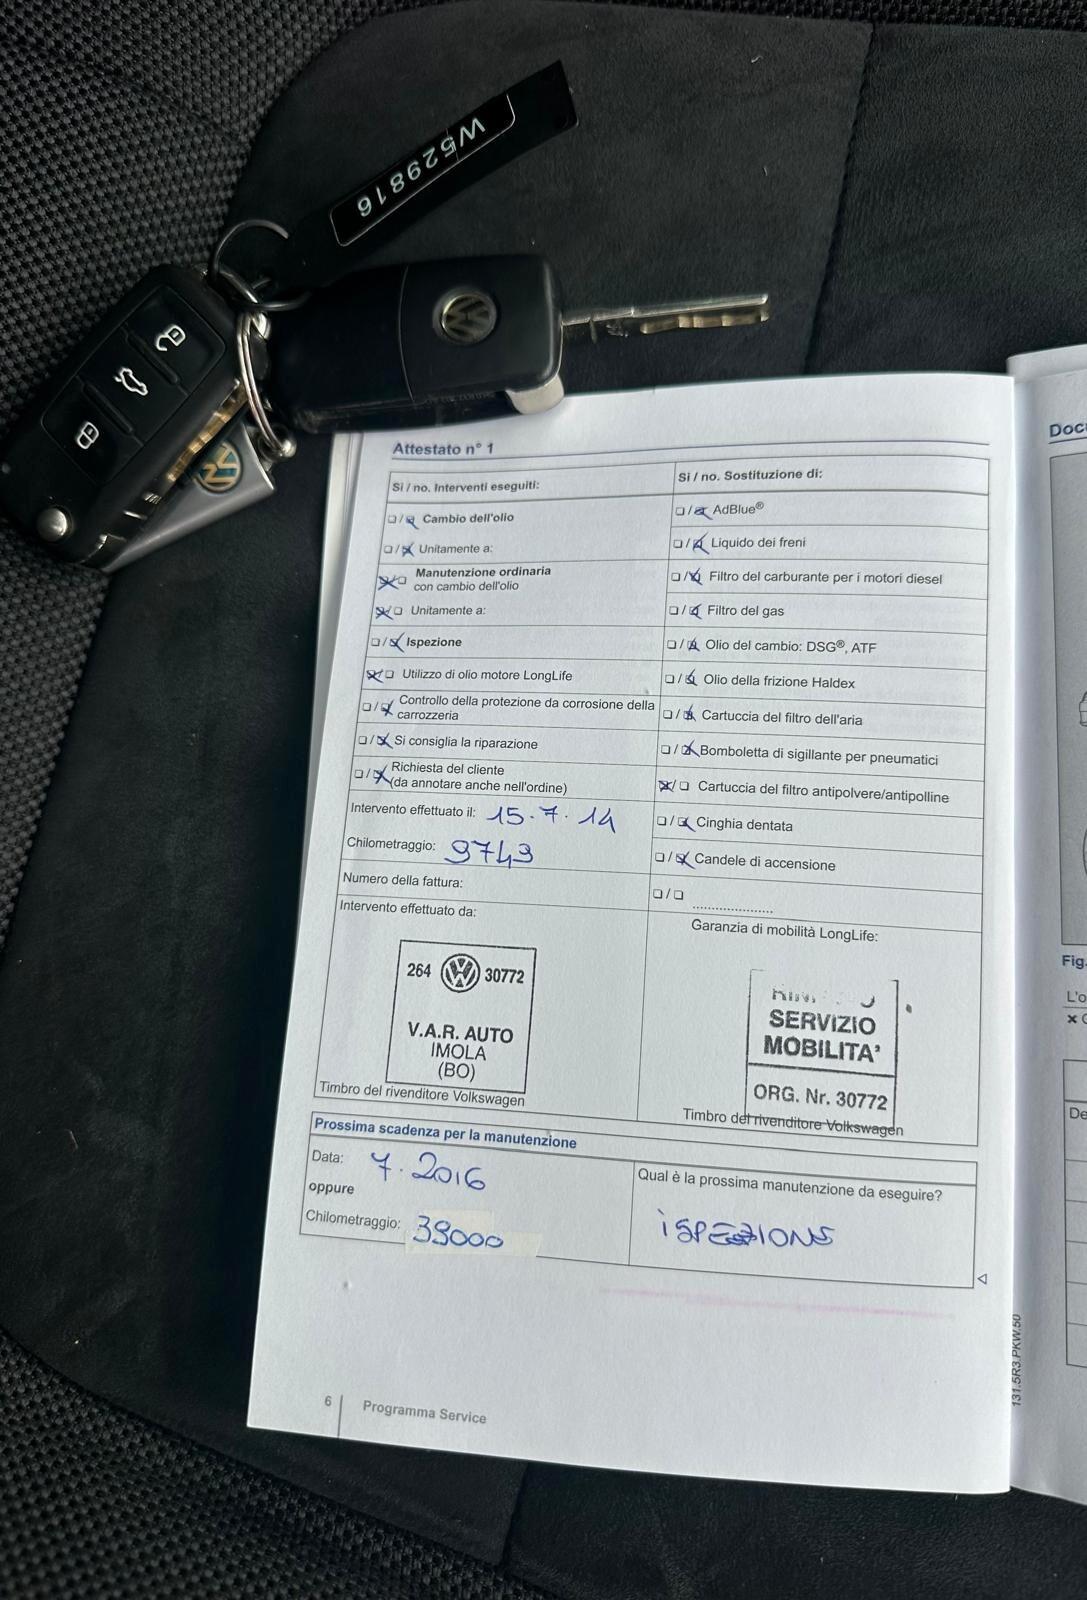 W529816
Attestato n° 1
Si / no. Interventi eseguiti:
Cambio dell'olio
Unitamente a:
Manutenzione ordinaria
con cambio dell'olio
Unitamente a:
Ispezione
Utilizzo di olio motore LongLife
Controllo della protezione da corrosione della
carrozzeria
Si consiglia la riparazione
Richiesta del cliente
(da annotare anche nell'ordine)
Intervento effettuato il: 15.7.14
Chilometraggio: 9743
Numero della fattura:
Intervento effettuato da:
264 VW 30772
V.A.R. AUTO
IMOLA
(BO)
Timbro del rivenditore Volkswagen
Si / no. Sostituzione di:
AdBlue®
Liquido dei freni
Filtro del carburante per i motori diesel
Filtro del gas
Olio del cambio: DSG®, ATF
Olio della frizione Haldex
Cartuccia del filtro dell'aria
Bomboletta di sigillante per pneumatici
Cartuccia del filtro antipolvere/antipolline
Cinghia dentata
Candele di accensione
....................
Garanzia di mobilità LongLife:
SERVIZIO
MOBILITA'
ORG. Nr. 30772
Timbro del rivenditore Volkswagen
Prossima scadenza per la manutenzione
Data: 7.2016
oppure
Chilometraggio: 39000
Qual è la prossima manutenzione da eseguire?
iSPEZIONE
6 Programma Service
131.5R3.PKW.50
Fig.
L'o
De